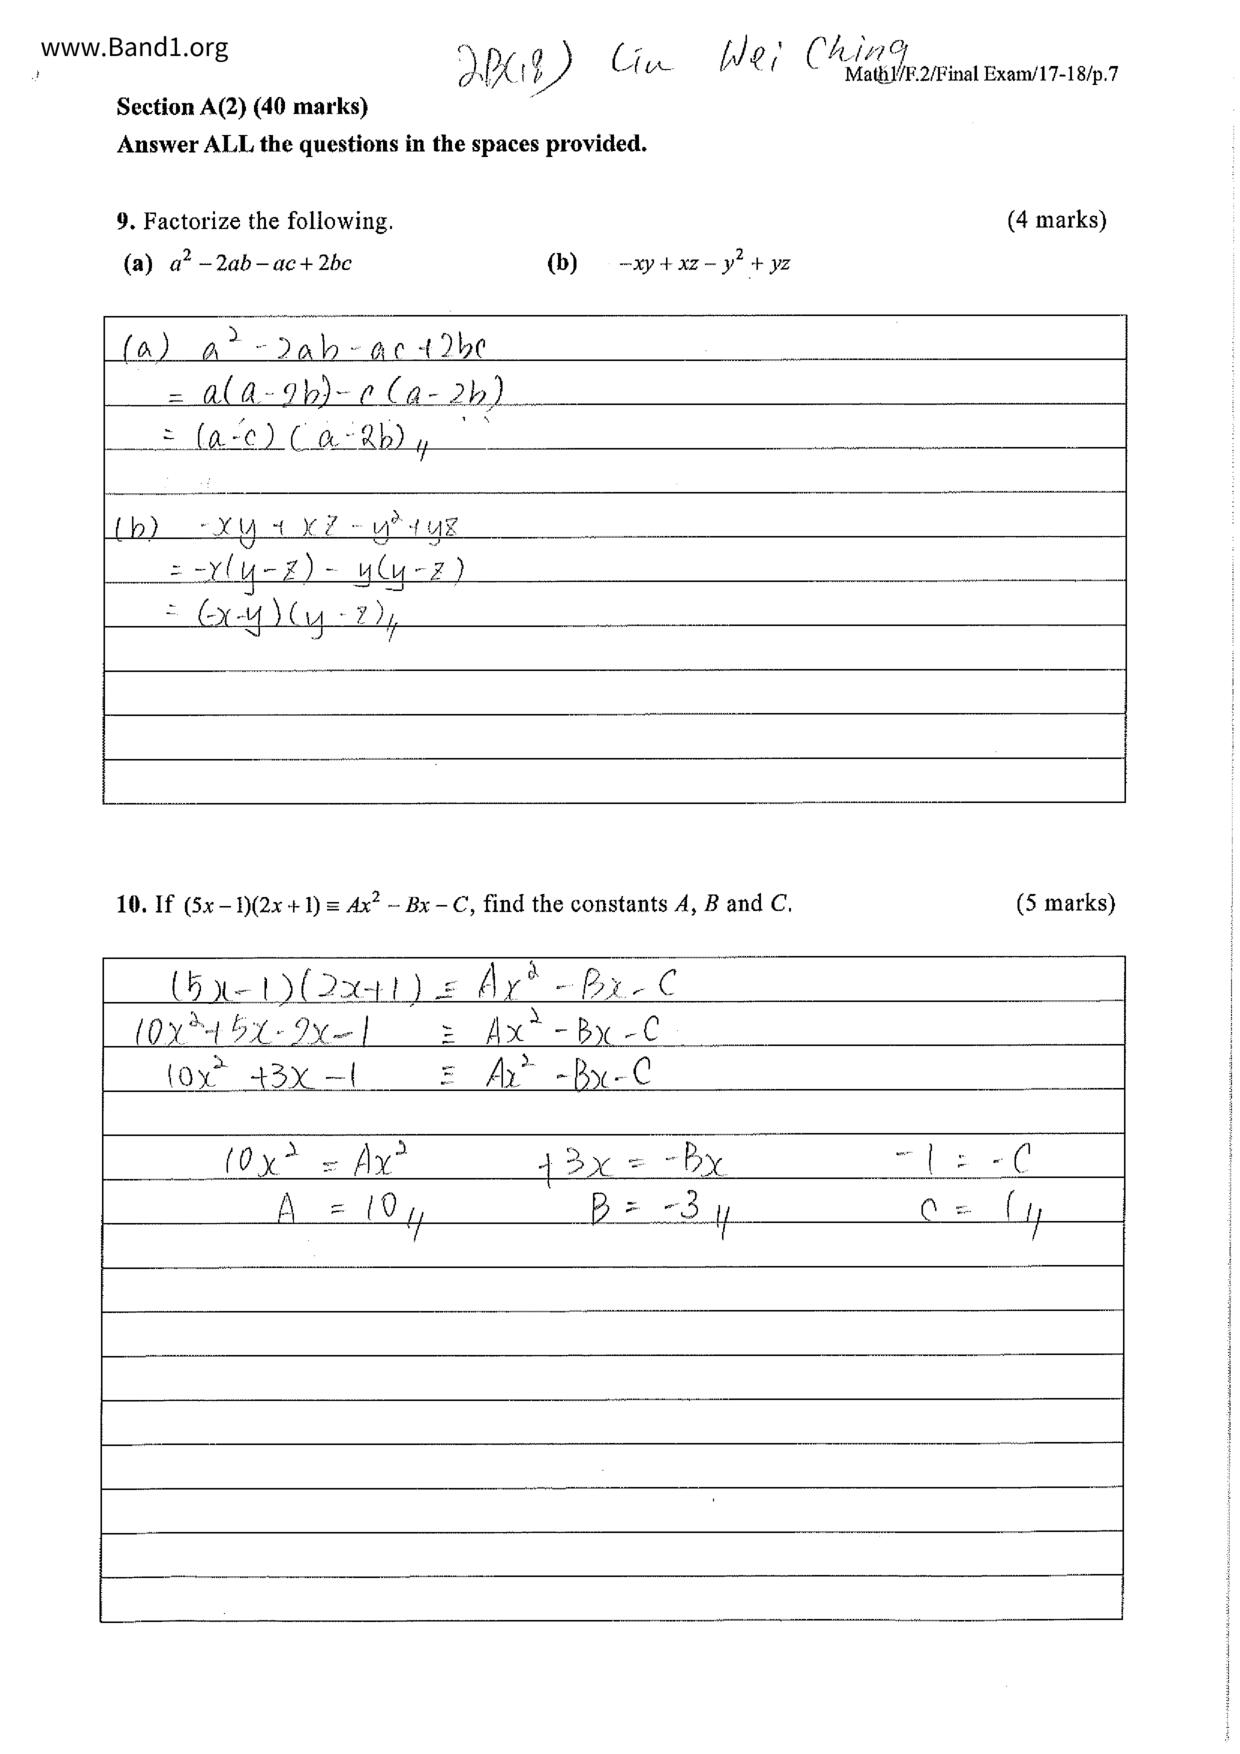 www.Band1.org
2B(18) Liu Wei Ching
Math1/F.2/Final Exam/17-18/p.7
Section A(2) (40 marks)
Answer ALL the questions in the spaces provided.
9. Factorize the following. (4 marks)
(a) a² − 2ab − ac + 2bc (b) −xy + xz − y² + yz
(a) a² - 2ab - ac + 2bc
= a(a - 2b) - c(a - 2b)
= (a - c)(a - 2b)
(b) -xy + xz - y² + yz
= -x(y - z) - y(y - z)
= (-x - y)(y - z)
10. If (5x − 1)(2x + 1) ≡ Ax² − Bx − C, find the constants A, B and C. (5 marks)
(5x - 1)(2x + 1) ≡ Ax² - Bx - C
10x² + 5x - 2x - 1 ≡ Ax² - Bx - C
10x² + 3x - 1 ≡ Ax² - Bx - C
10x² = Ax² +3x = -Bx -1 = -C
A = 10 B = -3 C = 1